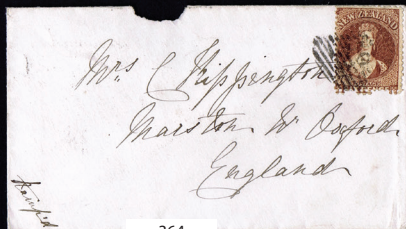 NEW ZEALAND
Mrs C Kippington
Marston Nr Oxford
England
264